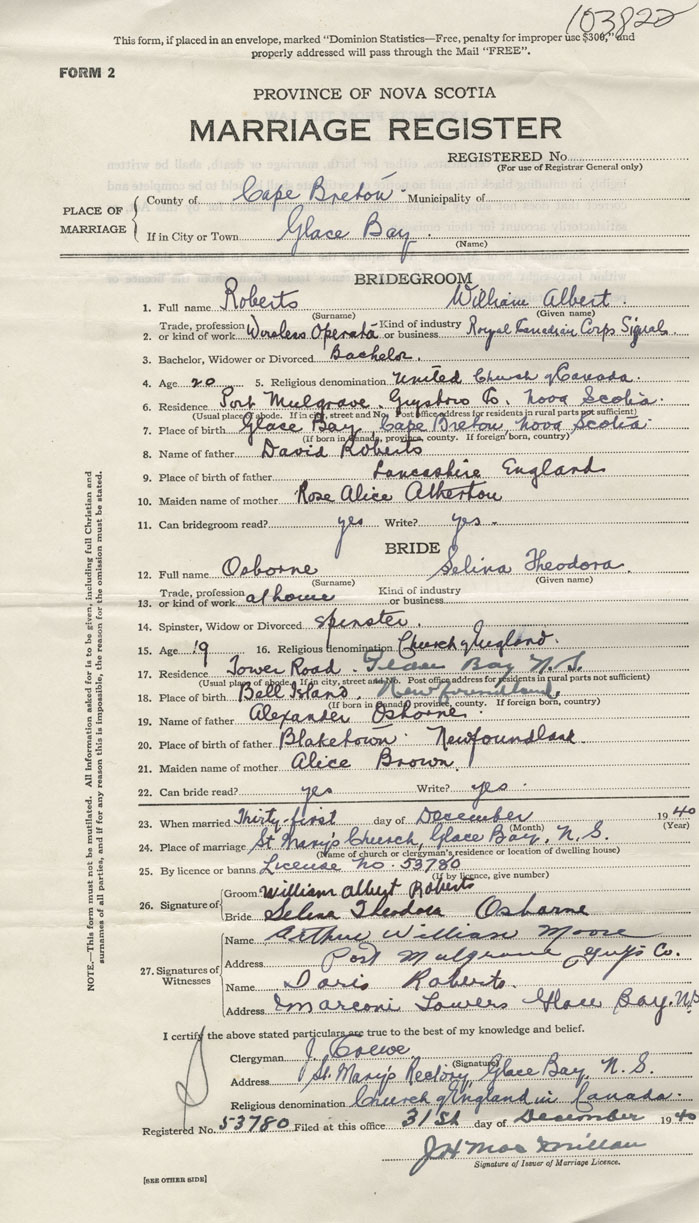 103822
This form, if placed in an envelope, marked "Dominion Statistics—Free, penalty for improper use $300," and
properly addressed will pass through the Mail "FREE".
FORM 2
PROVINCE OF NOVA SCOTIA
MARRIAGE REGISTER
REGISTERED No.
(For use of Registrar General only)
PLACE OF MARRIAGE
County of Cape Breton Municipality of
If in City or Town Glace Bay
(Name)
BRIDEGROOM
1. Full name Roberts William Albert
(Surname) (Given name)
2. Trade, profession or kind of work Wireless Operator Kind of industry or business Royal Canadian Corps Signals
3. Bachelor, Widower or Divorced Bachelor
4. Age 20 5. Religious denomination United Church of Canada
6. Residence Port Mulgrave. Guysboro Co. Nova Scotia
(Usual place of abode. If in city, street and No. Post office address for residents in rural parts not sufficient)
7. Place of birth Glace Bay, Cape Breton, Nova Scotia
(If born in Canada, province, county. If foreign born, country)
8. Name of father David Roberts
9. Place of birth of father Lancashire England
10. Maiden name of mother Rose Alice Atherton
11. Can bridegroom read? yes Write? yes
BRIDE
12. Full name Osborne Selina Theodora
(Surname) (Given name)
13. Trade, profession or kind of work at home Kind of industry or business
14. Spinster, Widow or Divorced Spinster
15. Age 19 16. Religious denomination Church of England
17. Residence Tower Road. Glace Bay N.S.
(Usual place of abode. If in city, street and No. Post office address for residents in rural parts not sufficient)
18. Place of birth Bell Island. Newfoundland
(If born in Canada province, county. If foreign born, country)
19. Name of father Alexander Osborne
20. Place of birth of father Blaketown Newfoundland
21. Maiden name of mother Alice Brown
22. Can bride read? yes Write? yes
23. When married Thirty-first day of December 1940
(Month) (Year)
24. Place of marriage St Mary's Church, Glace Bay, N.S.
(Name of church or clergyman's residence or location of dwelling house)
25. By licence or banns License No. 53780
(If by licence, give number)
26. Signature of
Groom William Albert Roberts
Bride Selina Theodora Osborne
27. Signatures of Witnesses
Name Arthur William Moore
Address Port Mulgrave Guy's Co.
Name Doris Roberts.
Address Marconi Towers Glace Bay. N.S
I certify the above stated particulars are true to the best of my knowledge and belief.
Clergyman J.
(Signature)
Address St. Mary's Rectory, Glace Bay, N.S.
Religious denomination Church of England in Canada.
Registered No. 53780 Filed at this office 31st day of December 1940
J H MacMillan
Signature of Issuer of Marriage Licence.
[SEE OTHER SIDE]
NOTE.—This form must not be mutilated. All information asked for is to be given, including full Christian and
surnames of all parties, and if for any reason this is impossible, the reason for the omission must be stated.